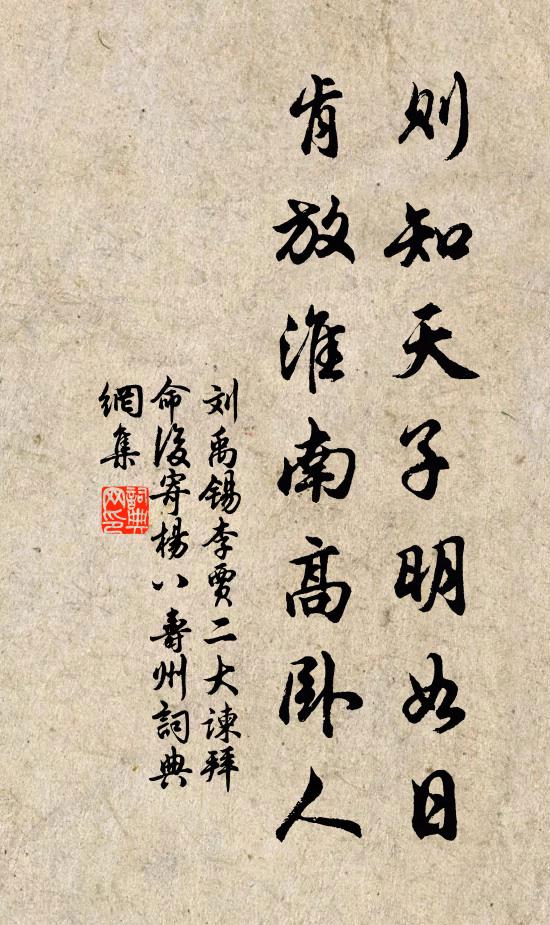 则知天子明如日
肯放淮南高卧人
刘禹锡李贾二大谏拜
命後寄楊八壽州詞典
網集
詞典
网印